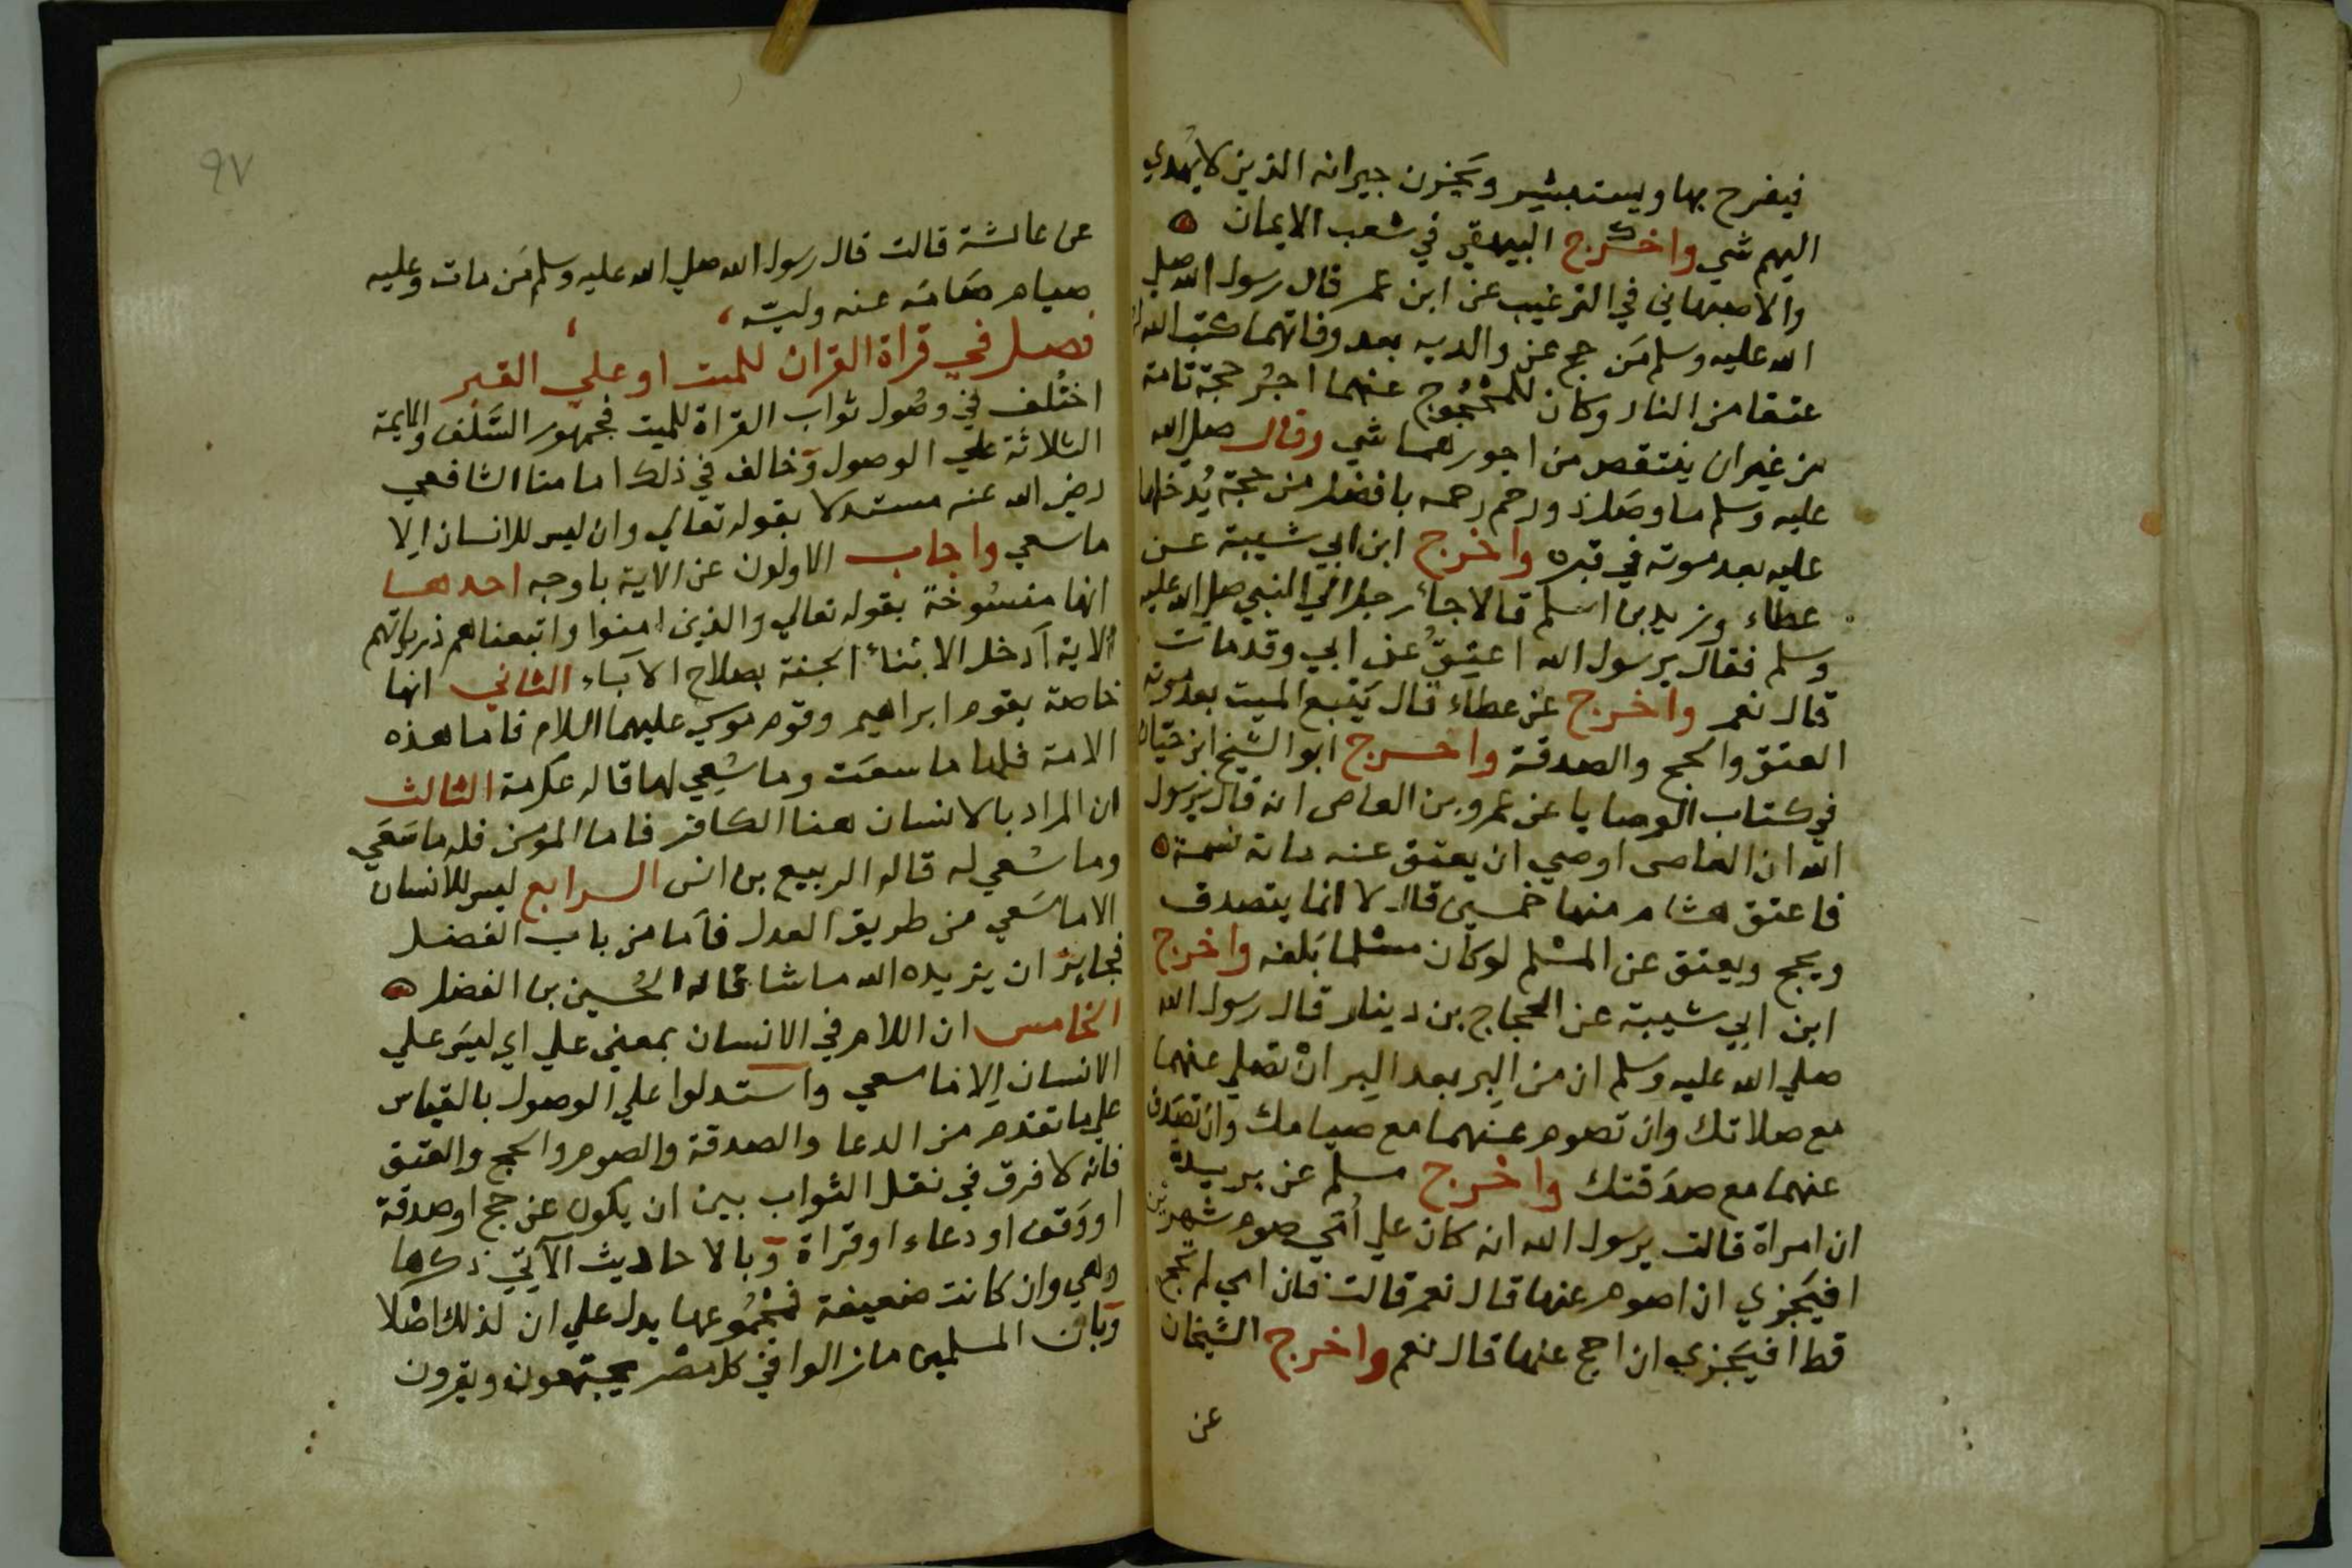 فيفرح بها ويستبشر ويحزن جيرانه الذين لا يُهدي
اليهم شي واخرج البيهقي في شعب الايمان
والاصبهاني في الترغيب عن ابن عمر قال رسول الله صلي
الله عليه وسلم مَن حج عن والديه بعد وفاتهما كتب الله له
عتقا من النار وكان للمحجُوج عنهما اجرُ حجة تامة
من غير ان ينتقص من اجورهما شي وقال صلي الله
عليه وسلم ما وصَل ذو رحم رحمه بافضل من حجة يُدخلها
عليه بعد موته في قبره واخرج ابن ابي شيبة عن
عطاء وزيد بن اسلم قالا جاء رجل الي النبي صلي الله عليه
وسلم فقال يرسول الله اعتِقُ عن ابي وقد مات
قال نعم واخرج عن عطاء قال يَتبع الميت بعد موته
العتق والحج والصدقة واخرج ابو الشيخ ابن حيان
في كتاب الوصايا عن عمرو بن العاصي انه قال يرسول
الله ان العاصي اوصي ان يعتق عنه ماية نسمة
فاعتق هشام منها خمسين قال لا انما يتصدق
ويحج ويعتق عن المسْلم لو كان مسْلما بَلغه واخرج
ابن ابي شيبة عن الحجاج بن دينار قال رسول الله
صلي الله عليه وسلم ان من البِر بعد البِر انْ تصلي عنهما
مع صلاتك وان تصوم عنهما مع صيامك وان تصَدق
عنهما مع صدَقتك واخرج مسلم عن بريدة
ان امراة قالت يرسول الله انه كان علي أمّي صوم شهرين
افيَجزي ان اصوم عنها قال نعم قالت فان امي لم تحج
قط افيَجزي ان احج عنها قال نعم واخرج الشيخان
عن
٩٧
عن عائشة قالت قال رسول الله صلي الله عليه وسلم مَن مات وعليه
صيام صَامَه عنه وليّه
فصل في قراة القران للميت او علي القبر
اختُلف في وصُول ثواب القراة للميت فجمهور السَّلف والايمة
الثلاثة علي الوصول وخالف في ذلك امامنا الشافعي
رضي الله عنه مستدلا بقوله تعالي وان ليس للانسان اِلا
ما سعي واجاب الاولون عن الاية باوجه احدها
انها منسُوخة بقوله تعالي والذين امنوا واتبعناهم ذرياتهم
الاية اَدخل الابناء الجنة بصلاح الآباء الثاني انها
خاصة بقوم ابراهيم وقوم موسي عليهما السلام فاما هذه
الامة فلها ما سعَت وما سُعِي لها قاله عكرمة الثالث
ان المراد بالانسان هنا الكافر فاما المؤمن فله ما سَعَي
وما سُعي له قاله الربيع بن انس الرابع ليس للانسان
الا ما سَعي من طريق العدل فاَما من باب الفضل
فجايز ان يزيده الله ما شا قاله الحُسين بن الفضل
الخامس ان اللام في الانسان بمعني علي اي ليسَ علي
الانسان اِلا ما سعي واستدلوا علي الوصول بالقياس
علي ما تقدم من الدعا والصدقة والصوم والحج والعتق
فانه لا فرق في نقل الثواب بين ان يكون عن حج او صدقة
او وَقف او دعاء او قراة وبالاحاديث الآتي ذكرها
وهي وان كانت ضعيفة فمجمُوعها يدل علي ان لذلك اصْلا
وبان المسلمين مازالوا في كل مصر يجتمعون ويقرون